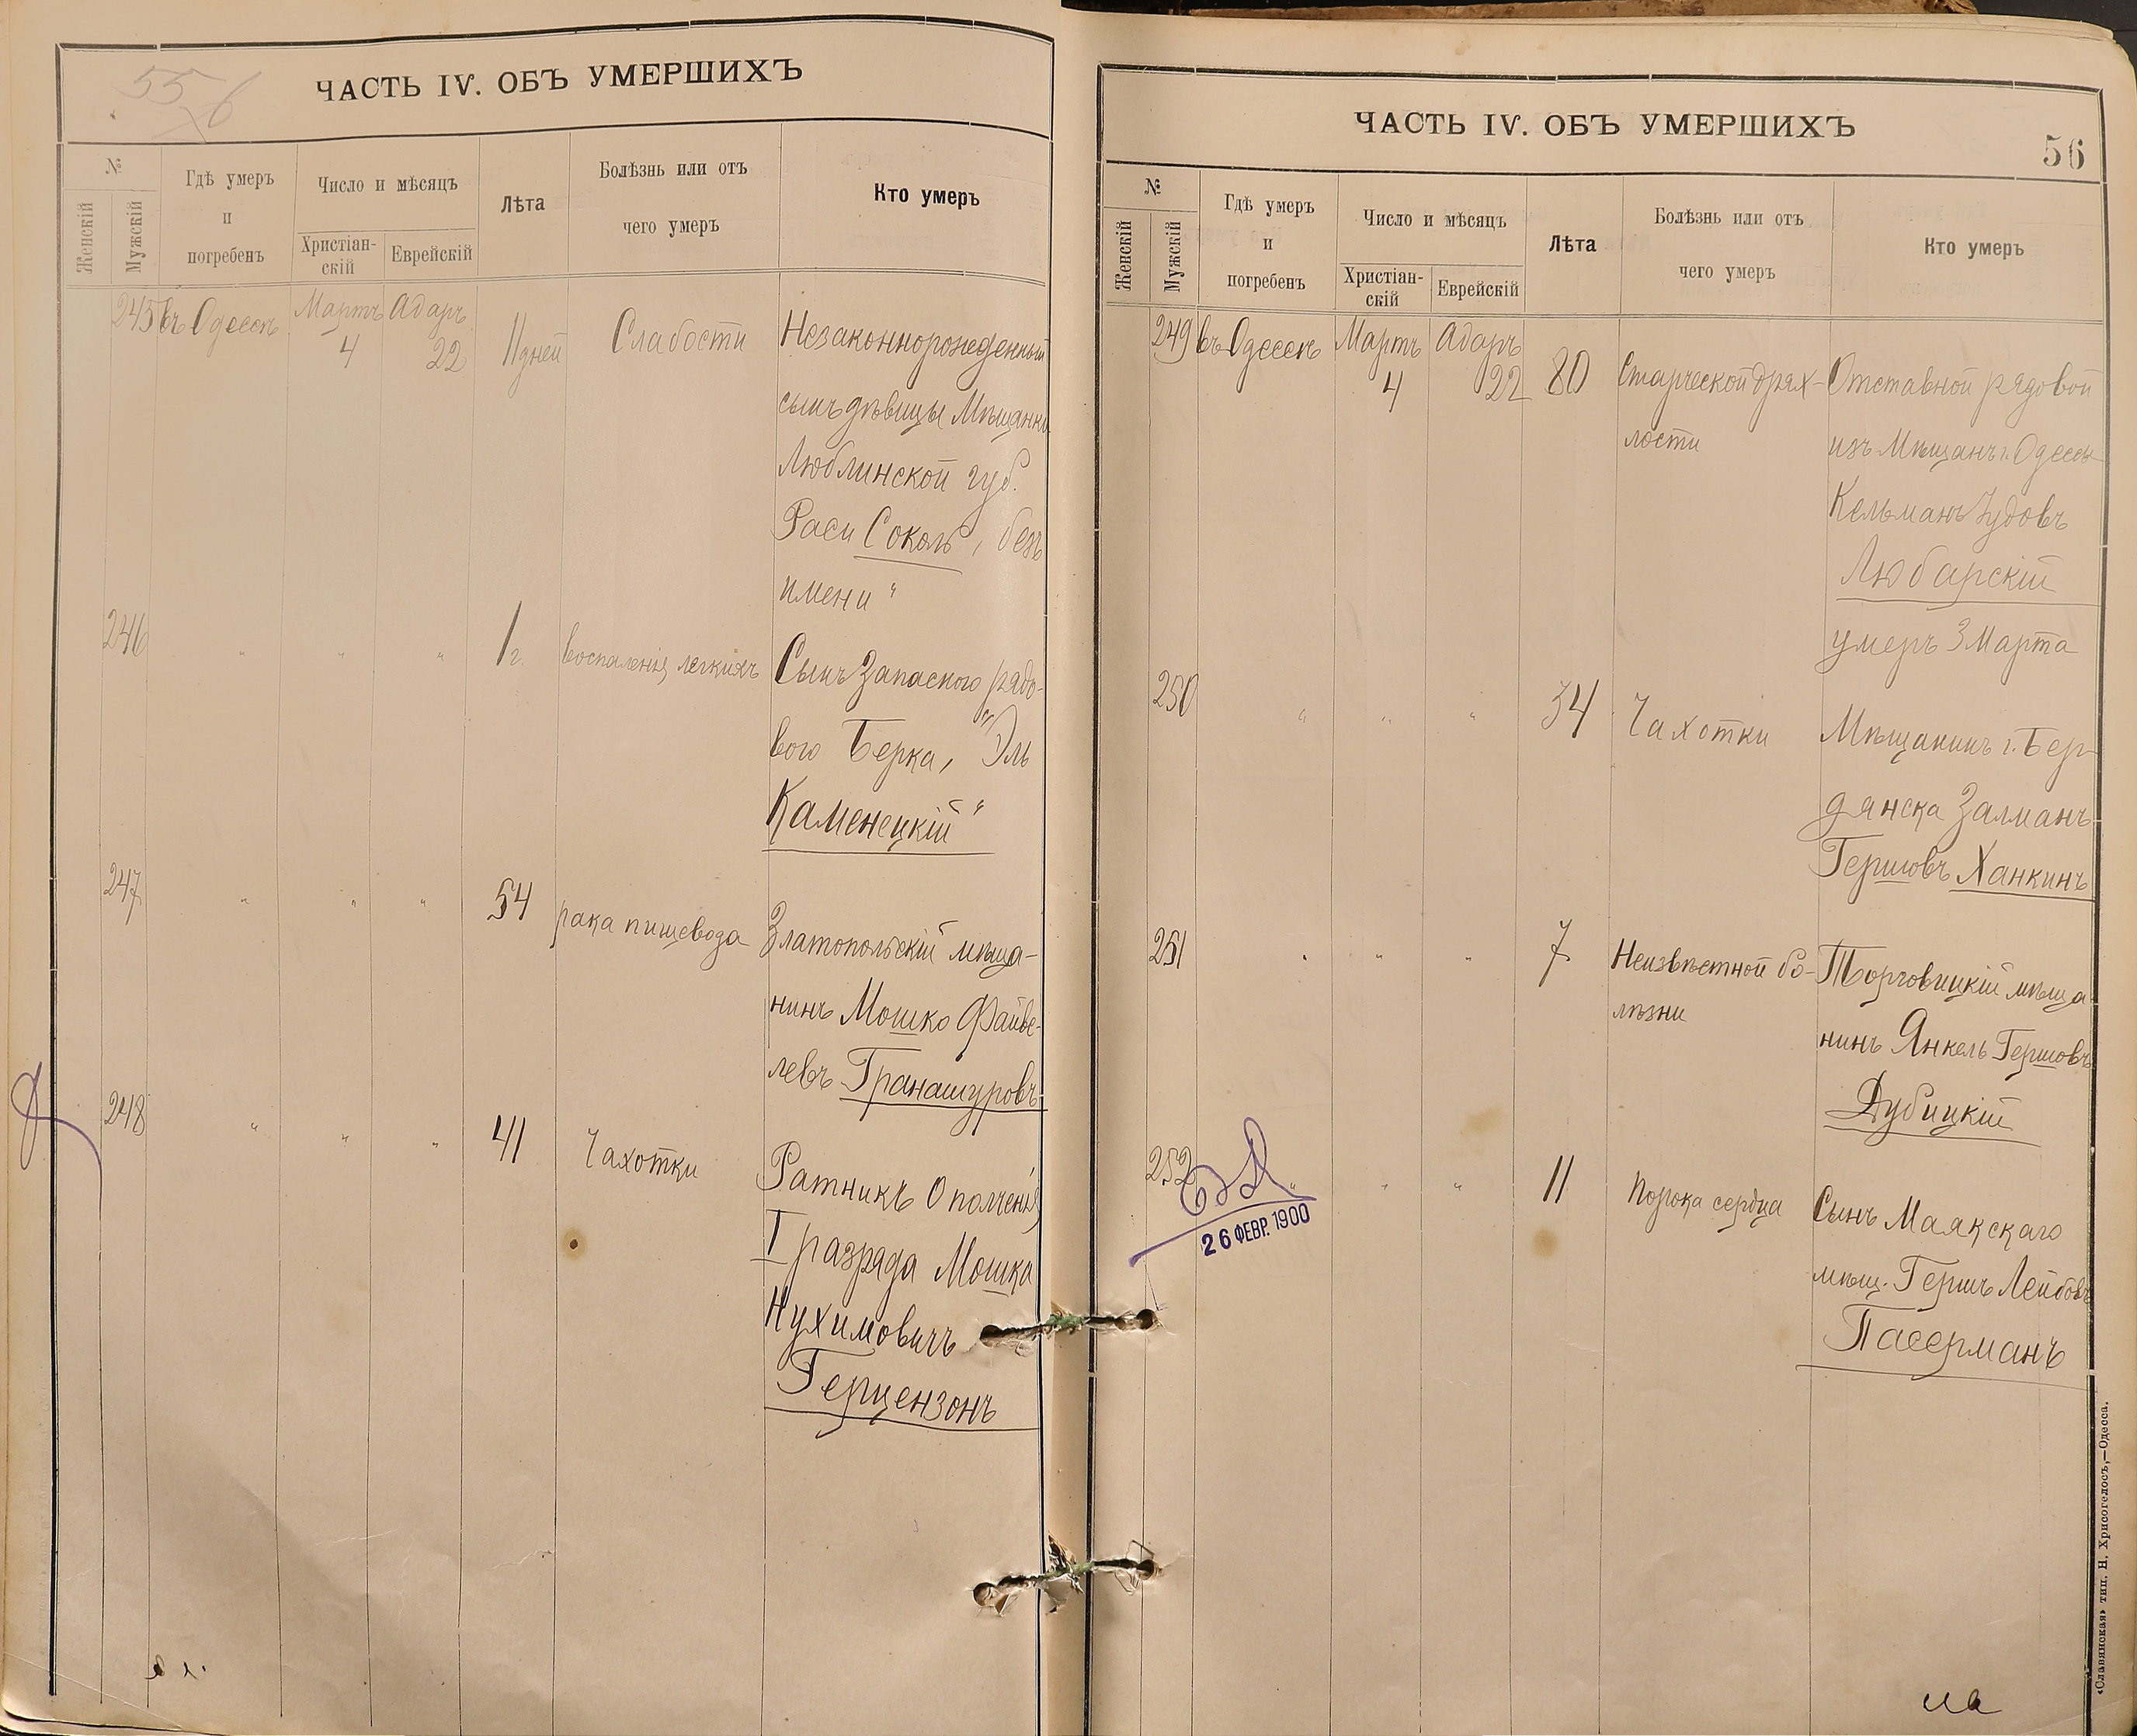 55
ЧАСТЬ IV. ОБЪ УМЕРШИХЪ
№
Женскій
Мужскій
Гдѣ умеръ
и
погребенъ
Число и мѣсяцъ
Христіан-
скій
Еврейскій
Лѣта
Болѣзнь или отъ
чего умеръ
Кто умеръ
245 въ Одессѣ Мартъ 4 Адаръ 22 11 дней Слабости Незаконнорожденный
сынъ дѣвицы Мѣщанки
Люблинской губ.
Раси Соколъ, безъ
имени "
246 " " " 1 г. воспаленія легкихъ Сынъ Запаснаго рядо-
вого Берка, "Эль
Каменецкій"
247 " " " 54 рака пищевода Златопольскій мѣща-
нинъ Мошко Файве-
левъ Гранашуровъ
248 " " " 41 Чахотки Ратникъ Ополченія
I разряда Мошка
Нухимовичъ
Герцензонъ
ЧАСТЬ IV. ОБЪ УМЕРШИХЪ
56
№
Женскій
Мужскій
Гдѣ умеръ
и
погребенъ
Число и мѣсяцъ
Христіан-
скій
Еврейскій
Лѣта
Болѣзнь или отъ
чего умеръ
Кто умеръ
249 въ Одессѣ Мартъ 4 Адаръ 22 80 Старческой дрях- Отставной рядовой
лости изъ Мѣщанъ г. Одессы
Кельманъ Іудовъ
Любарскій
умеръ 3 Марта
250 " " " 34 Чахотки Мѣщанинъ г. Бер-
дянска Залманъ
Гершовъ Ханкинъ
251 " " " 7 Неизвѣстной бо- Торговицкій мѣща-
лѣзни нинъ Янкель Гершовъ
Дубицкій
252 " " " 11 порока сердца Сынъ Маякскаго
мѣщ. Гершъ Лейбовъ
Пасерманъ
26 ФЕВР. 1900
на
«Славянская» тип. Н. Хрисогелосъ,—Одесса.